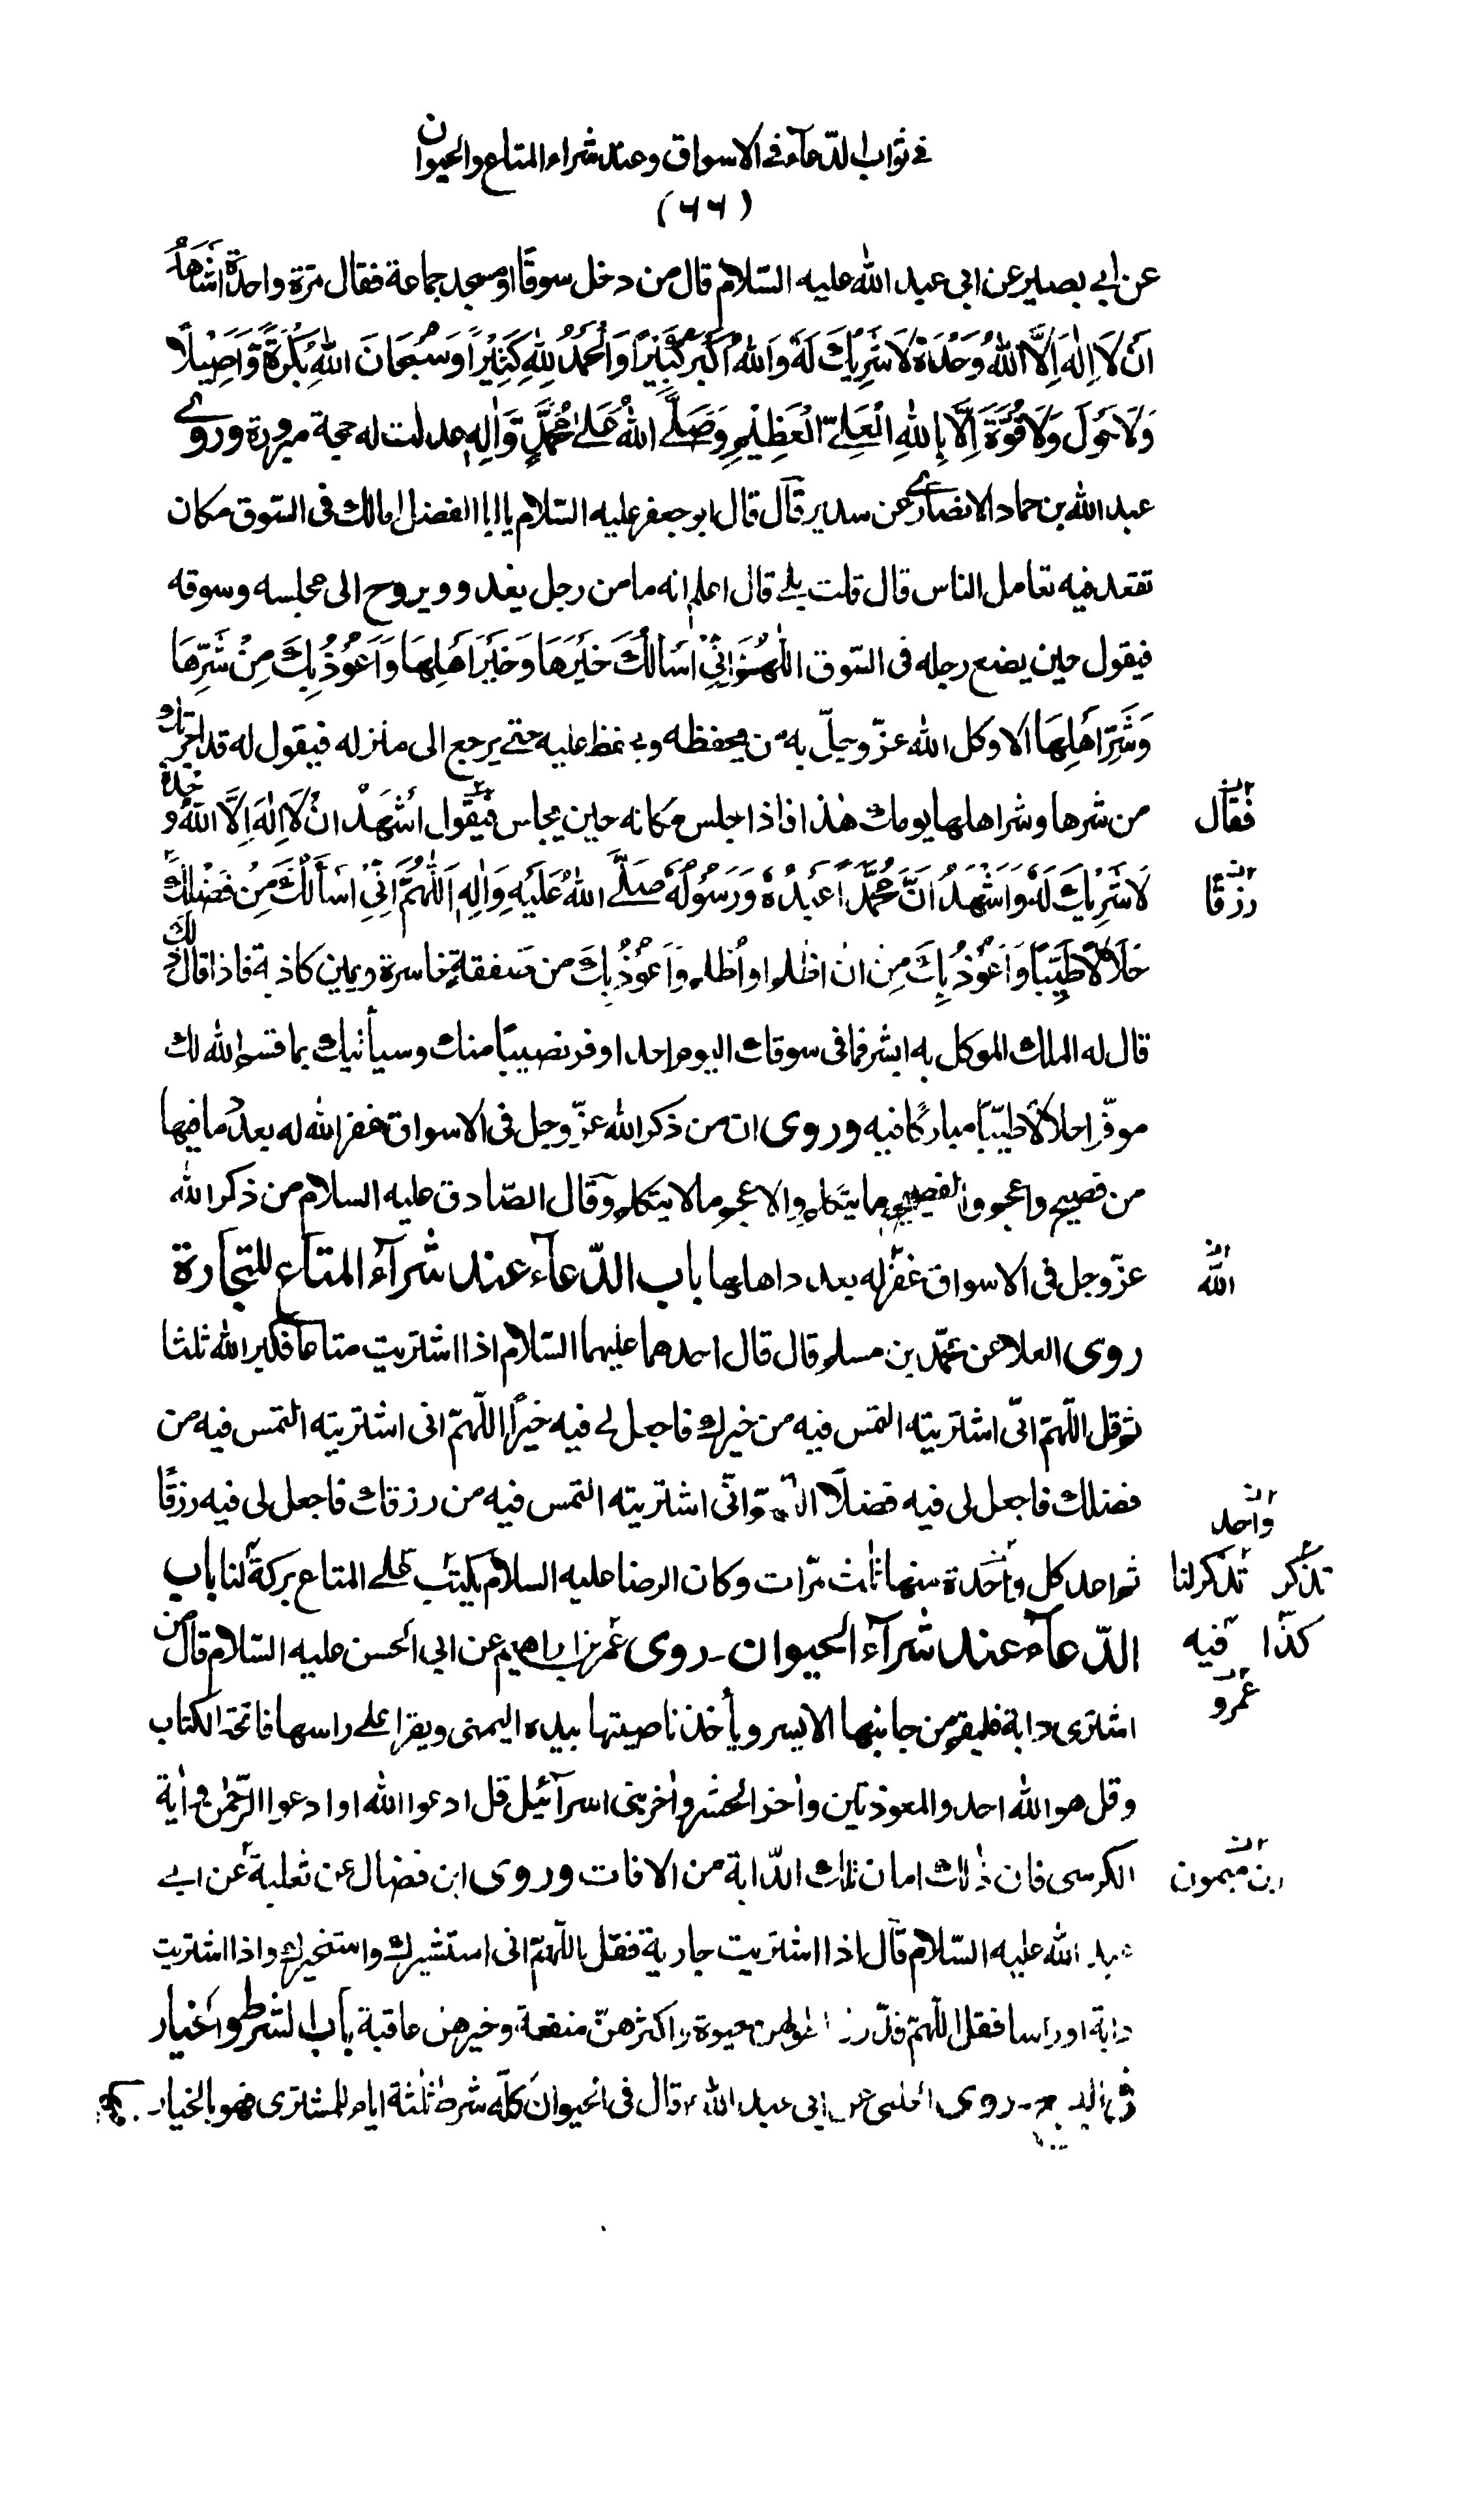 في ثواب الدّعآء في الاسواق وعند شراء المتاع والحيوان
(٦٦)
عن ابي بصير عن ابي عبد الله عليه السّلام قال من دخل سوقًا او مسجد جماعة فقال مرّة واحدة اَشْهَدُ
اَنْ لَا اِلٰهَ اِلَّا اللهُ وَحْدَهٗ لَا شَرِيْكَ لَهٗ وَاللهُ اَكْبَرُ كَبِيْرًا وَالْحَمْدُ لِلّٰهِ كَثِيْرًا وَسُبْحَانَ اللهِ بُكْرَةً وَّاَصِيْلًا
وَلَا حَوْلَ وَلَا قُوَّةَ اِلَّا بِاللهِ الْعَلِيِّ الْعَظِيْمِ وَصَلَّى اللهُ عَلٰى مُحَمَّدٍ وَّاٰلِهٖ عدلت له حجة مبرورة وروى
عبد الله بن حماد الانصارى عن سدير قال قال ابو جعفر عليه السّلام يا ابا الفضل امالك فى السّوق مكان
تقعد فيه تعامل الناس قال قلت بلى قال اعلم انه ما من رجل يغدو ويروح الى مجلسه وسوقه
فيقول حين يضع رجله فى السّوق اَللّٰهُمَّ اِنِّيْ اَسْأَلُكَ خَيْرَهَا وَخَيْرَ اَهْلِهَا وَاَعُوْذُ بِكَ مِنْ شَرِّهَا
وَشَرِّ اَهْلِهَا الا وكل الله عزّ وجلّ به من يحفظه ويحفظ عليه حتى يرجع الى منزله فيقول له قد اجرتك
من شرها وشر اهلها يومك هذا فاذا جلس مكانه حين يجلس فيقول اَشْهَدُ اَنْ لَا اِلٰهَ اِلَّا اللهُ وَحْدَهٗ
فقال
لَا شَرِيْكَ لَهٗ وَاَشْهَدُ اَنَّ مُحَمَّدًا عَبْدُهٗ وَرَسُوْلُهٗ صَلَّى اللهُ عَلَيْهِ وَاٰلِهٖ اَللّٰهُمَّ اِنِّيْ اَسْأَلُكَ مِنْ فَضْلِكَ
رزقًا
حَلَالًا طَيِّبًا وَاَعُوْذُ بِكَ مِنْ ان اظلم او اُظلم وَاَعُوْذُ بِكَ من صفقة خاسرة ويمين كاذبة فاذا قال ذلك
قال له الملك الموكل به ابشر فما فى سوقك اليوم احد اوفر نصيبًا منك وسيأتيك بما قسم الله لك
موفّرا حلالًا طيّبًا مباركًا فيه وروى ان من ذكر الله عزّ وجل فى الاسواق غفر الله له بعدد ما فيها
من فصيح واعجم والفصيح ما يتكلم والاعجم ما لا يتكلم وقال الصّادق عليه السلام من ذكر الله
عزّ وجل فى الاسواق غفر له بعدد اهلها باب الدّعآء عند شرآء المتاع للتجارة
الله
روى العلا عن محمّد بن مسلم قال قال احدهما عليهما السّلام اذا اشتريت متاعا فكبر الله ثلثا
ثم قل اللّهمّ انّى اشتريته التمس فيه من خيرك فاجعل لى فيه خيرًا اللّهمّ انى اشتريته التمس فيه من
فضلك فاجعل لى فيه فضلًا اللّهمّ انّى اشتريته التمس فيه من رزقك فاجعل لى فيه رزقًا
واحد
ثم اعد كل واحدة منها ثلث مرّات وكان الرضا عليه السلام يكتب على المتاع بركة لنا باب
تذكر تذكر لنا
الدّعآء عند شرآء الحيوان - روى عمر بن ابراهيم عن ابى الحسن عليه السّلام قال من
كذا فيه
عمرو
اشترى دابة فليقم من جانبها الايسر ويأخذ ناصيتها بيده اليمنى ويقرا على راسها فاتحة الكتاب
وقل هو الله احد والمعوذتين واٰخر الحشر واٰخر بنى اسرآئيل قل ادعوا الله او ادعوا الرّحمٰن واٰية
الكرسى فان ذٰلك امان تلك الدّابة من الافات وروى ابن فضال عن ثعلبة عن ابى
ابن ميمون
عبد الله عليه السّلام قال اذا اشتريت جارية فقل اللّهمّ انى استشيرك واستخيرك واذا اشتريت
دابة او راسا فقل اللّهمّ قدّر لى اطولهن حيوة واكثرهنّ منفعة وخيرهن عاقبة باب الشرط والخيار
فى البيع - روى الحلبى عن ابى عبد الله ع قال فى الحيوان كلّه شرط ثلٰثة ايام للمشترى فهو بالخيار